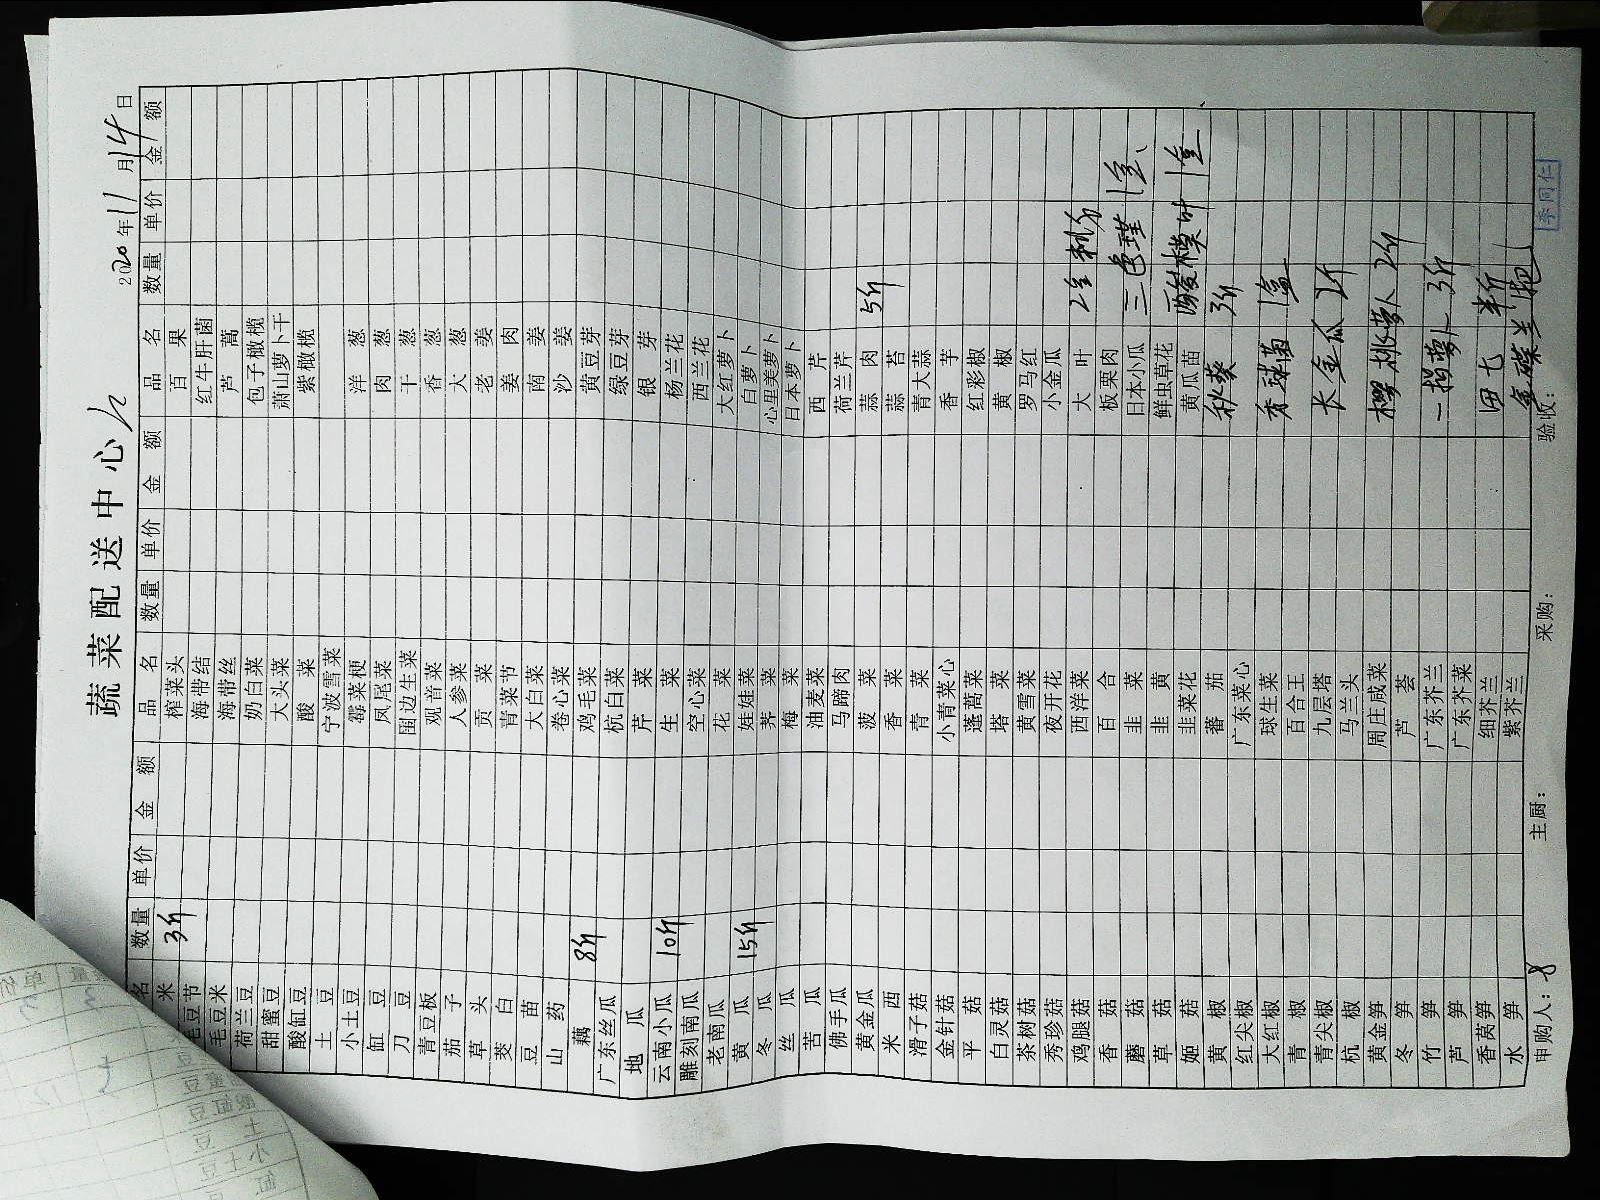 蔬菜配送中心
2020年11月14日
名 数量 单价 金额 品名 数量 单价 金额 品名 数量 单价 金额
米 3斤 榨菜头 百果
毛豆节 海带结 红牛肝菌
毛豆米 海带丝 芦蒿
荷兰豆 奶白菜 包子橄榄
甜蜜豆 大头菜 萧山萝卜干
酸缸豆 酸菜 紫橄榄
土豆 宁波雪菜
小土豆 霉菜梗 洋葱
缸豆 凤尾菜 肉葱
刀豆 围边生菜 干葱
青豆板 观首菜 香葱
茄子 人参菜 大葱
草头 贡菜 老姜
茭白 青菜节 姜肉
豆苗 大白菜 南姜
山药 卷心菜 沙姜
藕 8斤 鸡毛菜 黄豆芽
广东丝瓜 杭白菜 绿豆芽
地瓜 芹菜 银芽
云南小瓜 10斤 生菜 杨兰花
雕刻南瓜 空心菜 西兰花
老南瓜 花菜 大红萝卜
黄瓜 15斤 娃娃菜 白萝卜
冬瓜 荠菜 心里美萝卜
丝瓜 梅菜 日本萝卜
苦瓜 油麦菜 西芹
佛手瓜 马蹄肉 荷兰芹
黄金瓜 菠菜 蒜肉 5斤
米西 香菜 蒜苔
滑子菇 青菜 青大蒜
金针菇 小青菜心 香芋
平菇 蓬蒿菜 红彩椒
白灵菇 塔菜 黄椒
茶树菇 黄雪菜 罗马红
秀珍菇 夜开花 小金瓜
鸡腿菇 西洋菜 大叶
香菇 百合 板栗肉
蘑菇 韭菜 日本小瓜 三色堇 1盒
草菇 韭黄 鲜虫草花
姬菇 韭菜花 黄瓜苗 酸模叶 1盒
黄椒 蕃茄 秋葵 3斤
红尖椒 广东菜心
大红椒 球生菜 秀球菌 1盒
青椒 百合王
青尖椒 九层塔 长金瓜 2斤
杭椒 马兰头
黄金笋 周庄咸菜 樱桃萝卜 2斤
冬笋 芦荟
竹笋 广东芥兰 一捆萝卜 3斤
芦笋 广东芥菜
香莴笋 细芥兰 田七 半斤
水笋 紫芥兰 金碟兰 1把
申购人: 主厨: 采购: 验收: 李同仁